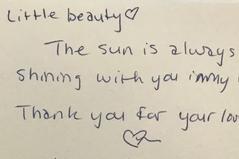 Little beauty♡
The sun is always
shining with you in my
Thank you for your